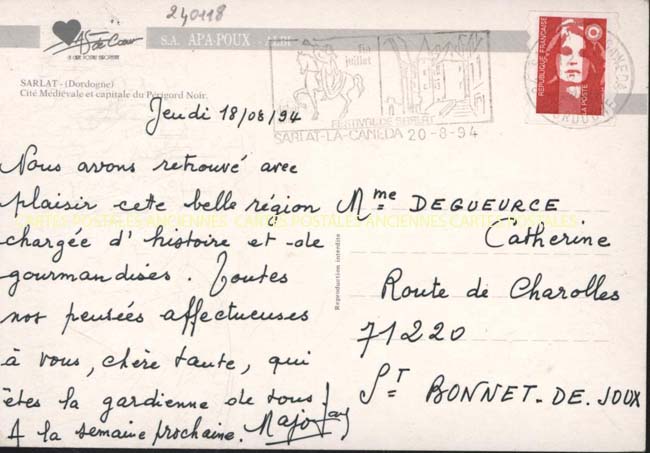 240118
As de Cœur
S.A. APA-POUX - ALBI
SARLAT - (Dordogne)
Cité Médiévale et capitale du Périgord Noir.
fin
juillet
SARLAT-LA-CANEDA 20-8-94
REPUBLIQUE FRANÇAISE
LA POSTE
Jeudi 18/08/94
Nous avons retrouvé avec
plaisir cette belle région
chargée d'histoire et de
gourmandises. Toutes
nos pensées affectueuses
à vous, chère tante, qui
êtes la gardienne de tous!
A la semaine prochaine.
Reproduction interdite
Mme DEGUEURCE
Catherine
Route de Charolles
71220
ST BONNET-DE-JOUX
CARTES POSTALES ANCIENNES CARTES POSTALES ANCIENNES CARTES POSTALES